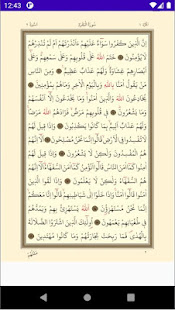 12:43
سُورَةُ الْبَقَرَةِ
إِنَّ الَّذِينَ كَفَرُوا سَوَاءٌ عَلَيْهِمْ ءَأَنْذَرْتَهُمْ أَمْ لَمْ تُنْذِرْهُمْ
لَا يُؤْمِنُونَ ۝ خَتَمَ اللَّهُ عَلَى قُلُوبِهِمْ وَعَلَى سَمْعِهِمْ وَعَلَى
أَبْصَارِهِمْ غِشَاوَةٌ وَلَهُمْ عَذَابٌ عَظِيمٌ ۝ وَمِنَ النَّاسِ
مَنْ يَقُولُ آمَنَّا بِاللَّهِ وَبِالْيَوْمِ الْآخِرِ وَمَا هُمْ بِمُؤْمِنِينَ ۝
يُخَادِعُونَ اللَّهَ وَالَّذِينَ آمَنُوا وَمَا يَخْدَعُونَ إِلَّا أَنْفُسَهُمْ
وَمَا يَشْعُرُونَ ۝ فِي قُلُوبِهِمْ مَرَضٌ فَزَادَهُمُ اللَّهُ مَرَضًا
وَلَهُمْ عَذَابٌ أَلِيمٌ بِمَا كَانُوا يَكْذِبُونَ ۝ وَإِذَا قِيلَ لَهُمْ
لَا تُفْسِدُوا فِي الْأَرْضِ قَالُوا إِنَّمَا نَحْنُ مُصْلِحُونَ ۝ أَلَا إِنَّهُمْ
هُمُ الْمُفْسِدُونَ وَلَكِنْ لَا يَشْعُرُونَ ۝ وَإِذَا قِيلَ لَهُمْ
آمِنُوا كَمَا آمَنَ النَّاسُ قَالُوا أَنُؤْمِنُ كَمَا آمَنَ السُّفَهَاءُ أَلَا إِنَّهُمْ
هُمُ السُّفَهَاءُ وَلَكِنْ لَا يَعْلَمُونَ ۝ وَإِذَا لَقُوا الَّذِينَ
آمَنُوا قَالُوا آمَنَّا وَإِذَا خَلَوْا إِلَى شَيَاطِينِهِمْ قَالُوا إِنَّا مَعَكُمْ
إِنَّمَا نَحْنُ مُسْتَهْزِءُونَ ۝ اللَّهُ يَسْتَهْزِئُ بِهِمْ وَيَمُدُّهُمْ
فِي طُغْيَانِهِمْ يَعْمَهُونَ ۝ أُولَئِكَ الَّذِينَ اشْتَرَوُا الضَّلَالَةَ
بِالْهُدَى فَمَا رَبِحَتْ تِجَارَتُهُمْ وَمَا كَانُوا مُهْتَدِينَ ۝